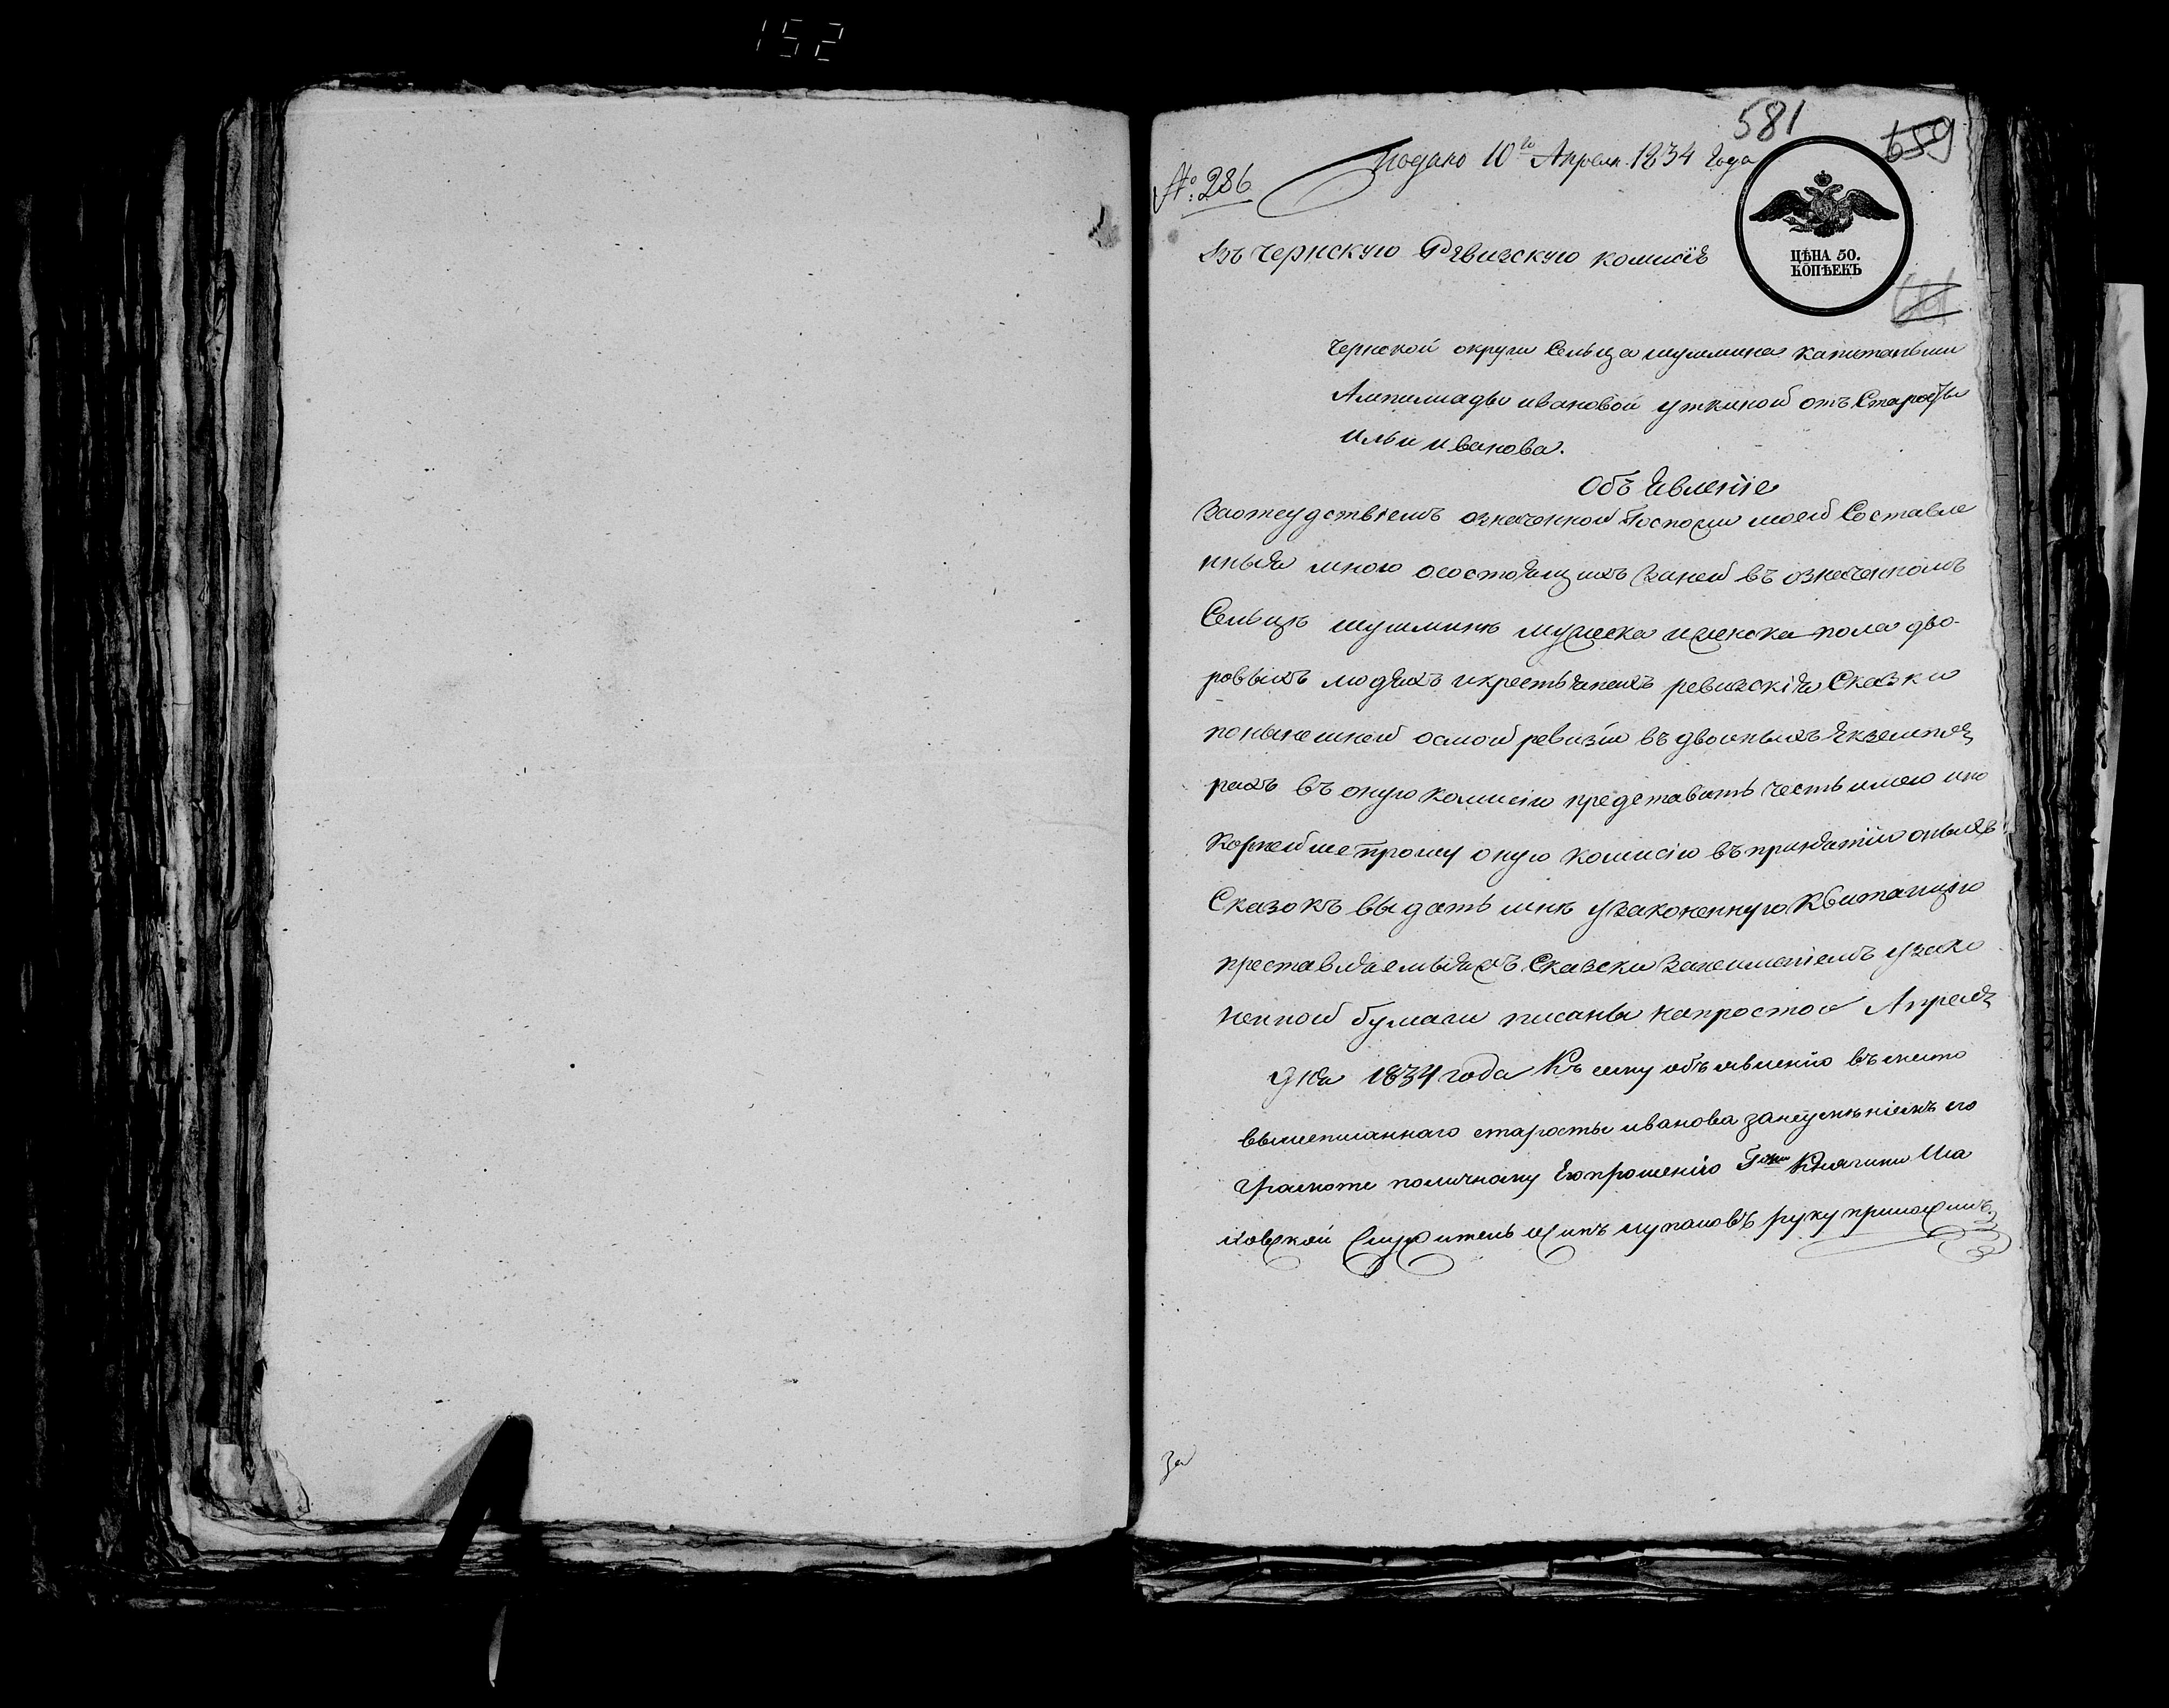 152
581
659
№: 286
Подано 10го Апреля 1834 Года
ЦѢНА 50.
КОПѢЕКЪ
Въ Чернскую Рѣвизскую комисiѣ
Чернской округи Сельца шушмина капитанши
ивановой уткиной отъ Старосты
ильи иванова.
Объ явленiе
Заотсудствiемъ означенной Госпожи моей Составле
нныя мною осостоящихъ Заней въ означенномъ
Сельцѣ шушминѣ мужеска иженска пола дво-
ровыхъ людяхъ икрестьянехъ ревизскiя Сказки
понынешней осмой ревизiи въ двоиныхъ Екземпля
рахъ въ оную комисiю представить честь имею ипо
корнейше прошу оную комисiю въ принятiи оныхъ
Сказокъ выдать мнѣ узаконенную Квитанцiю
преставляемыя жъ Сказски Занеименiемъ узако
ненной бумаги писаны напростой Апреля
дня 1834 года Къ сему объявленiю въместо
вышеписаннаго старосты иванова занеуменiемъ его
Грамоте поличному Его прошенiю Гжи Княгини Ша
ховской Служитель руку приложилъ
За